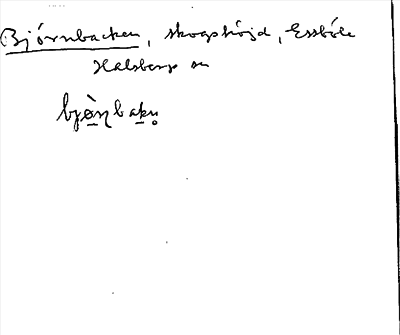 Bjørnbacken, skogshöjd, Essböle
Halsberg sn
bjø̀ṇbakn̥